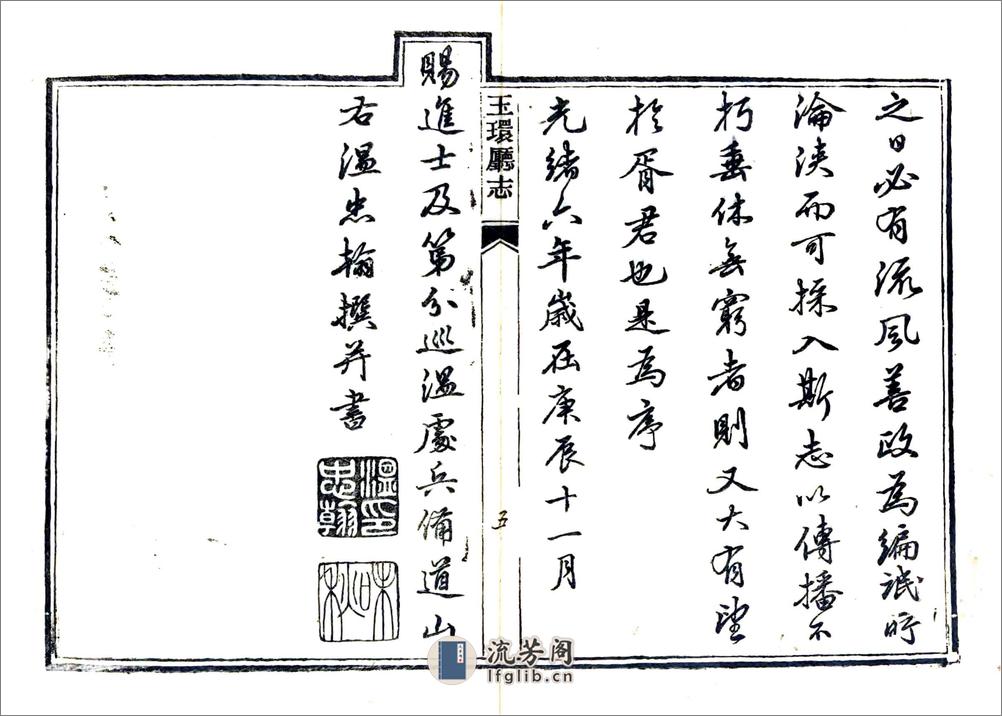 之日必有流風善政為編氓所
淪浹而可採入斯志以傳播不
朽垂休無窮者則又大有望
於胥君也是為序
光緒六年歲在庚辰十一月
玉環廳志
五
賜進士及第分巡溫處兵備道山
右溫忠翰撰并書
溫印忠翰
味秋
流芳阁
lfglib.cn